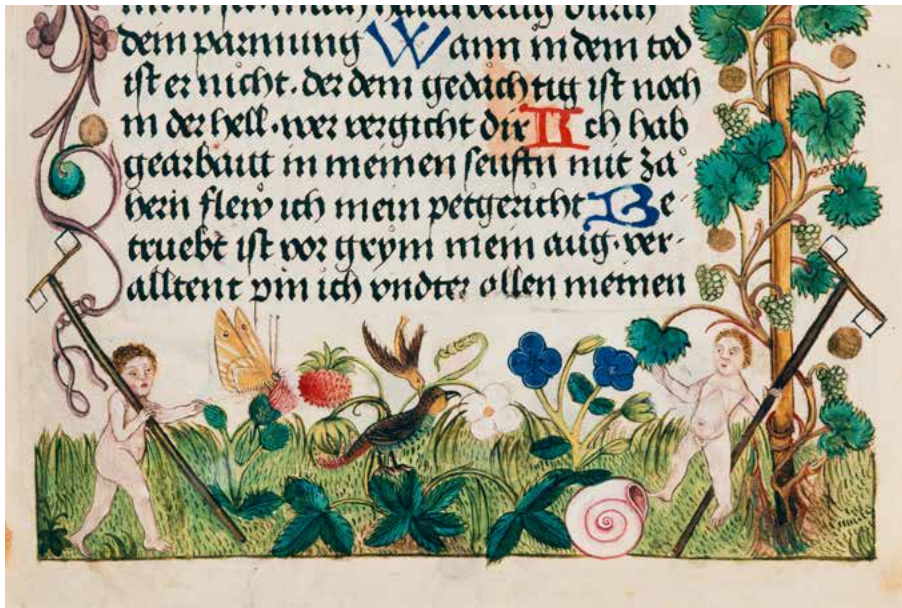 mein mach durch
dein parmung Wann in dem tod
ist er nicht. der dein gedåchtig ist noch
in der hell. wer vergicht dir Ich hab
gearbaitt in meinen seuftn mit za
hern flew ich mein petgericht Be
truebt ist vor grym mein aug. ver-
alltent pin ich vndter allen meinen